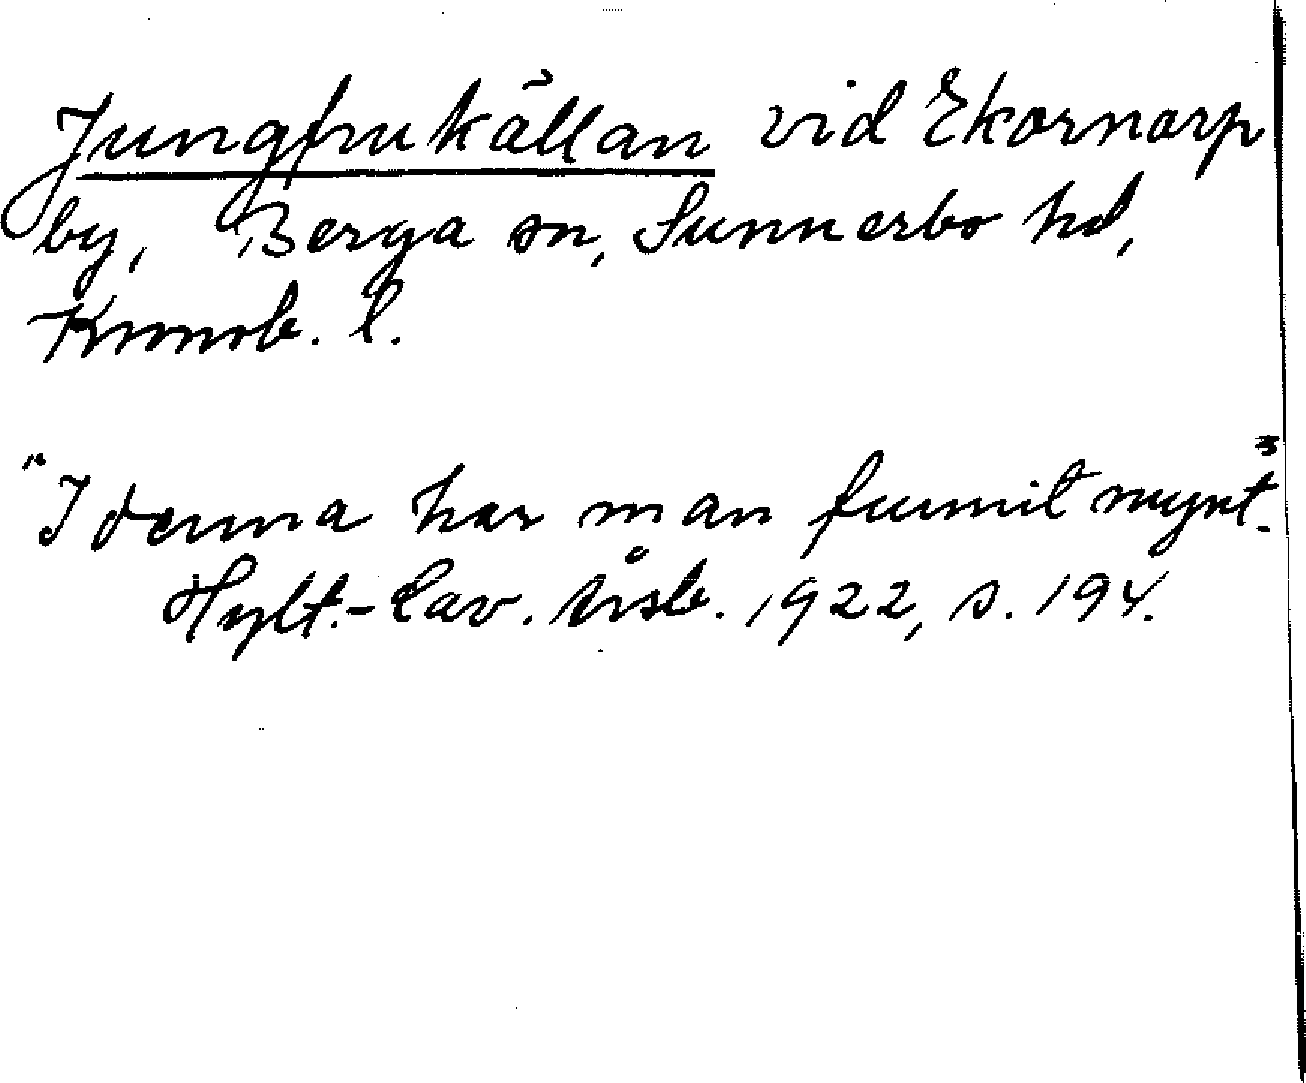 Jungfrukällan vid Ekornarp
by, Berga sn, Sunnerbo hd,
Kronob. l.
"I denna har man funnit mynt."
Hylt.-Cav. årsb. 1922, s. 194.